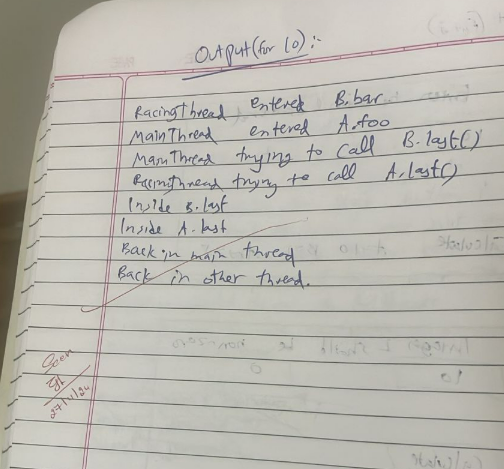 Output (for 10) :-
RacingThread entered B.bar
MainThread entered A.foo
MainThread trying to call B.last()
RacingThread trying to call A.last()
Inside B.last
Inside A.last
Back in main thread
Back in other thread.
Seen
27/11/24